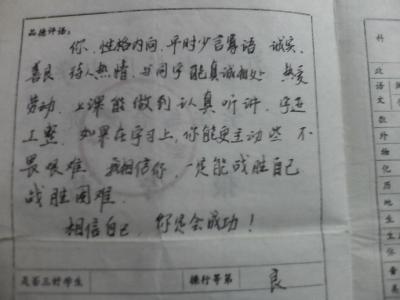 品德评语:
你,性格内向,平时少言寡语 诚实、
善良 待人热情,与同学能真诚相处 热爱
劳动,上课能做到认真听讲,字迹
工整,如果在学习上,你能更主动些 不
畏艰难 我相信你,一定能战胜自己
战胜困难.
相信自己,你定会成功!
是否三好学生
操行等第 良
科
政
语文
数
外
物
化
历
地
生
音
体
美